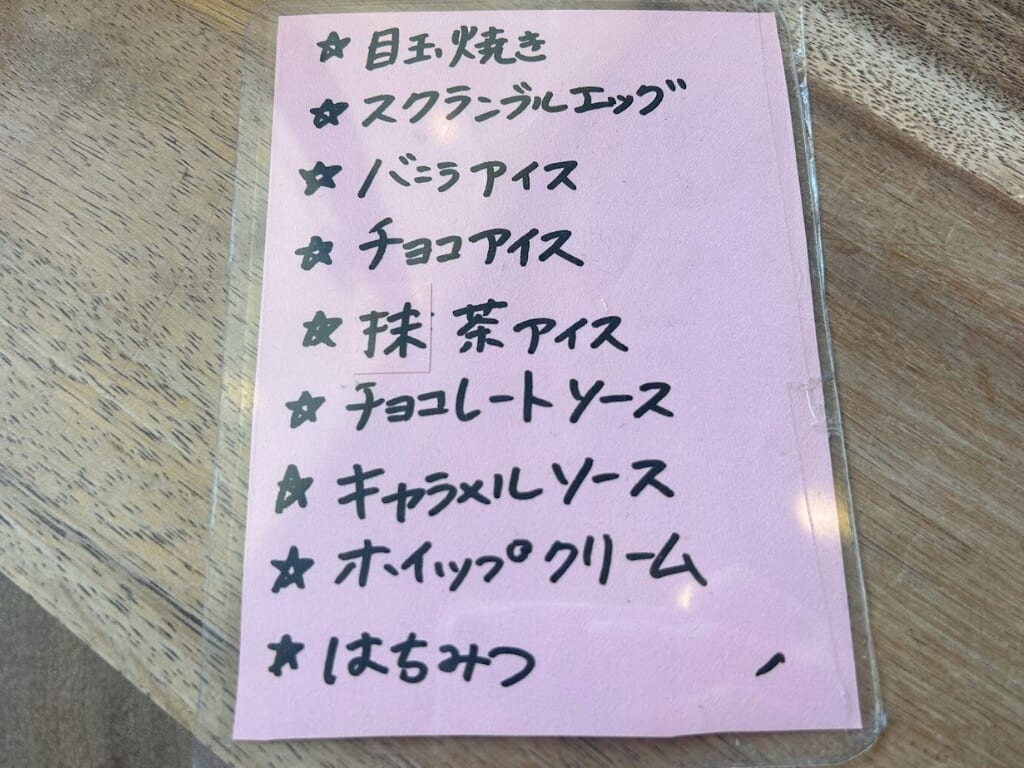 ☆ 目玉焼き
☆ スクランブルエッグ
☆ バニラアイス
☆ チョコアイス
☆ 抹茶アイス
☆ チョコレートソース
☆ キャラメルソース
☆ ホイップクリーム
☆ はちみつ